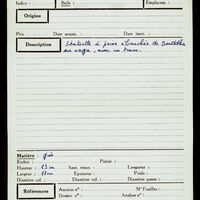 Index : Style : Emplacem. :
Origine
Prix Date acquis. : Date inscr. :
Description Statuette à ébauchée de Bouddha
sur naga, avec un
Matière : grès
Enduit : Patine :
Hauteur : 15 cm haut. visage : Longueur :
Largeur : 11 cm Epaisseur : Poids :
Diamètre col. : Diamètre panse :
Références Anciens nº : Nº Fouilles :
Dossier nº : Analyse nº :